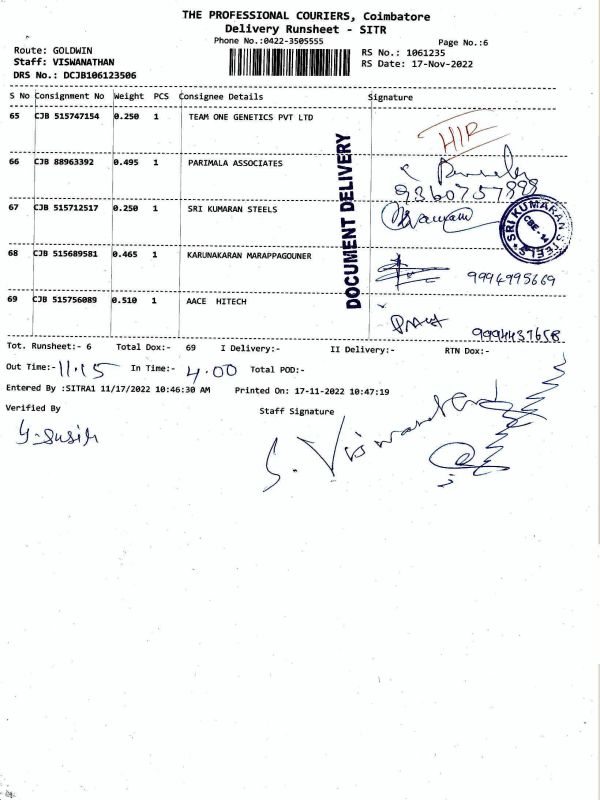 THE PROFESSIONAL COURIERS, Coimbatore
Delivery Runsheet - SITR
Phone No.:0422-3505555
Page No.:6
Route: GOLDWIN
RS No.: 1061235
Staff: VISWANATHAN
RS Date: 17-Nov-2022
DRS No.: DCJB106123506
S No Consignment No Weight PCS Consignee Details Signature
65 CJB 515747154 0.250 1 TEAM ONE GENETICS PVT LTD
66 CJB 88963392 0.495 1 PARIMALA ASSOCIATES
67 CJB 515712517 0.250 1 SRI KUMARAN STEELS
SRI KUMARAN STEELS
CBE-14
68 CJB 515689581 0.465 1 KARUNAKARAN MARAPPAGOUNER 9994995669
69 CJB 515756089 0.510 1 AACE HITECH
DOCUMENT DELIVERY
Tot. Runsheet:- 6 Total Dox:- 69 I Delivery:- II Delivery:- RTN Dox:-
Out Time:- 11.15 In Time:- 4.00 Total POD:-
Entered By :SITRA1 11/17/2022 10:46:30 AM Printed On: 17-11-2022 10:47:19
Verified By Staff Signature
S. Viswanathan